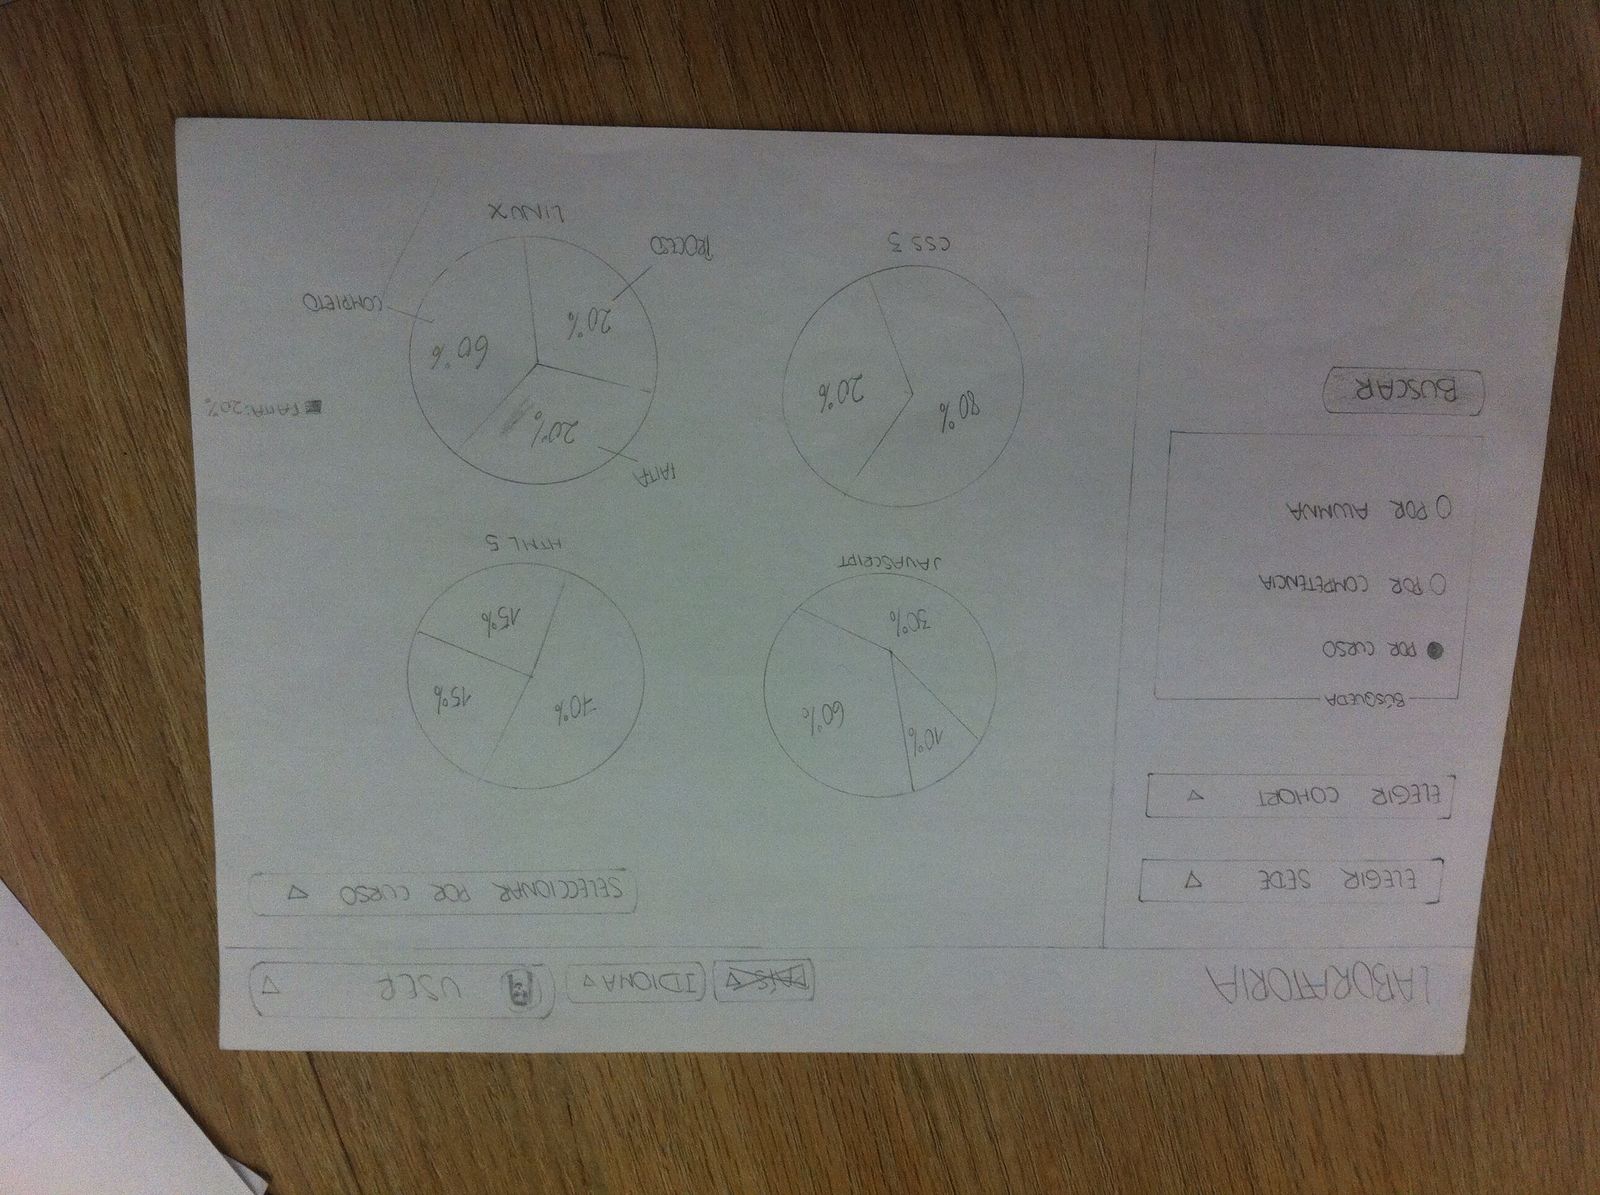 LABORATORIA
PAÍS
IDIOMA
USER
ELEGIR SEDE
ELEGIR COHORT
BÚSQUEDA
POR CURSO
POR COMPETENCIA
POR ALUMNA
BUSCAR
SELECCIONAR POR CURSO
10%
60%
30%
JAVASCRIPT
70%
15%
15%
HTML 5
80%
20%
CSS 3
FALTA
20%
60%
20%
PROCESO
COMPLETO
LINUX
FALTA: 20%